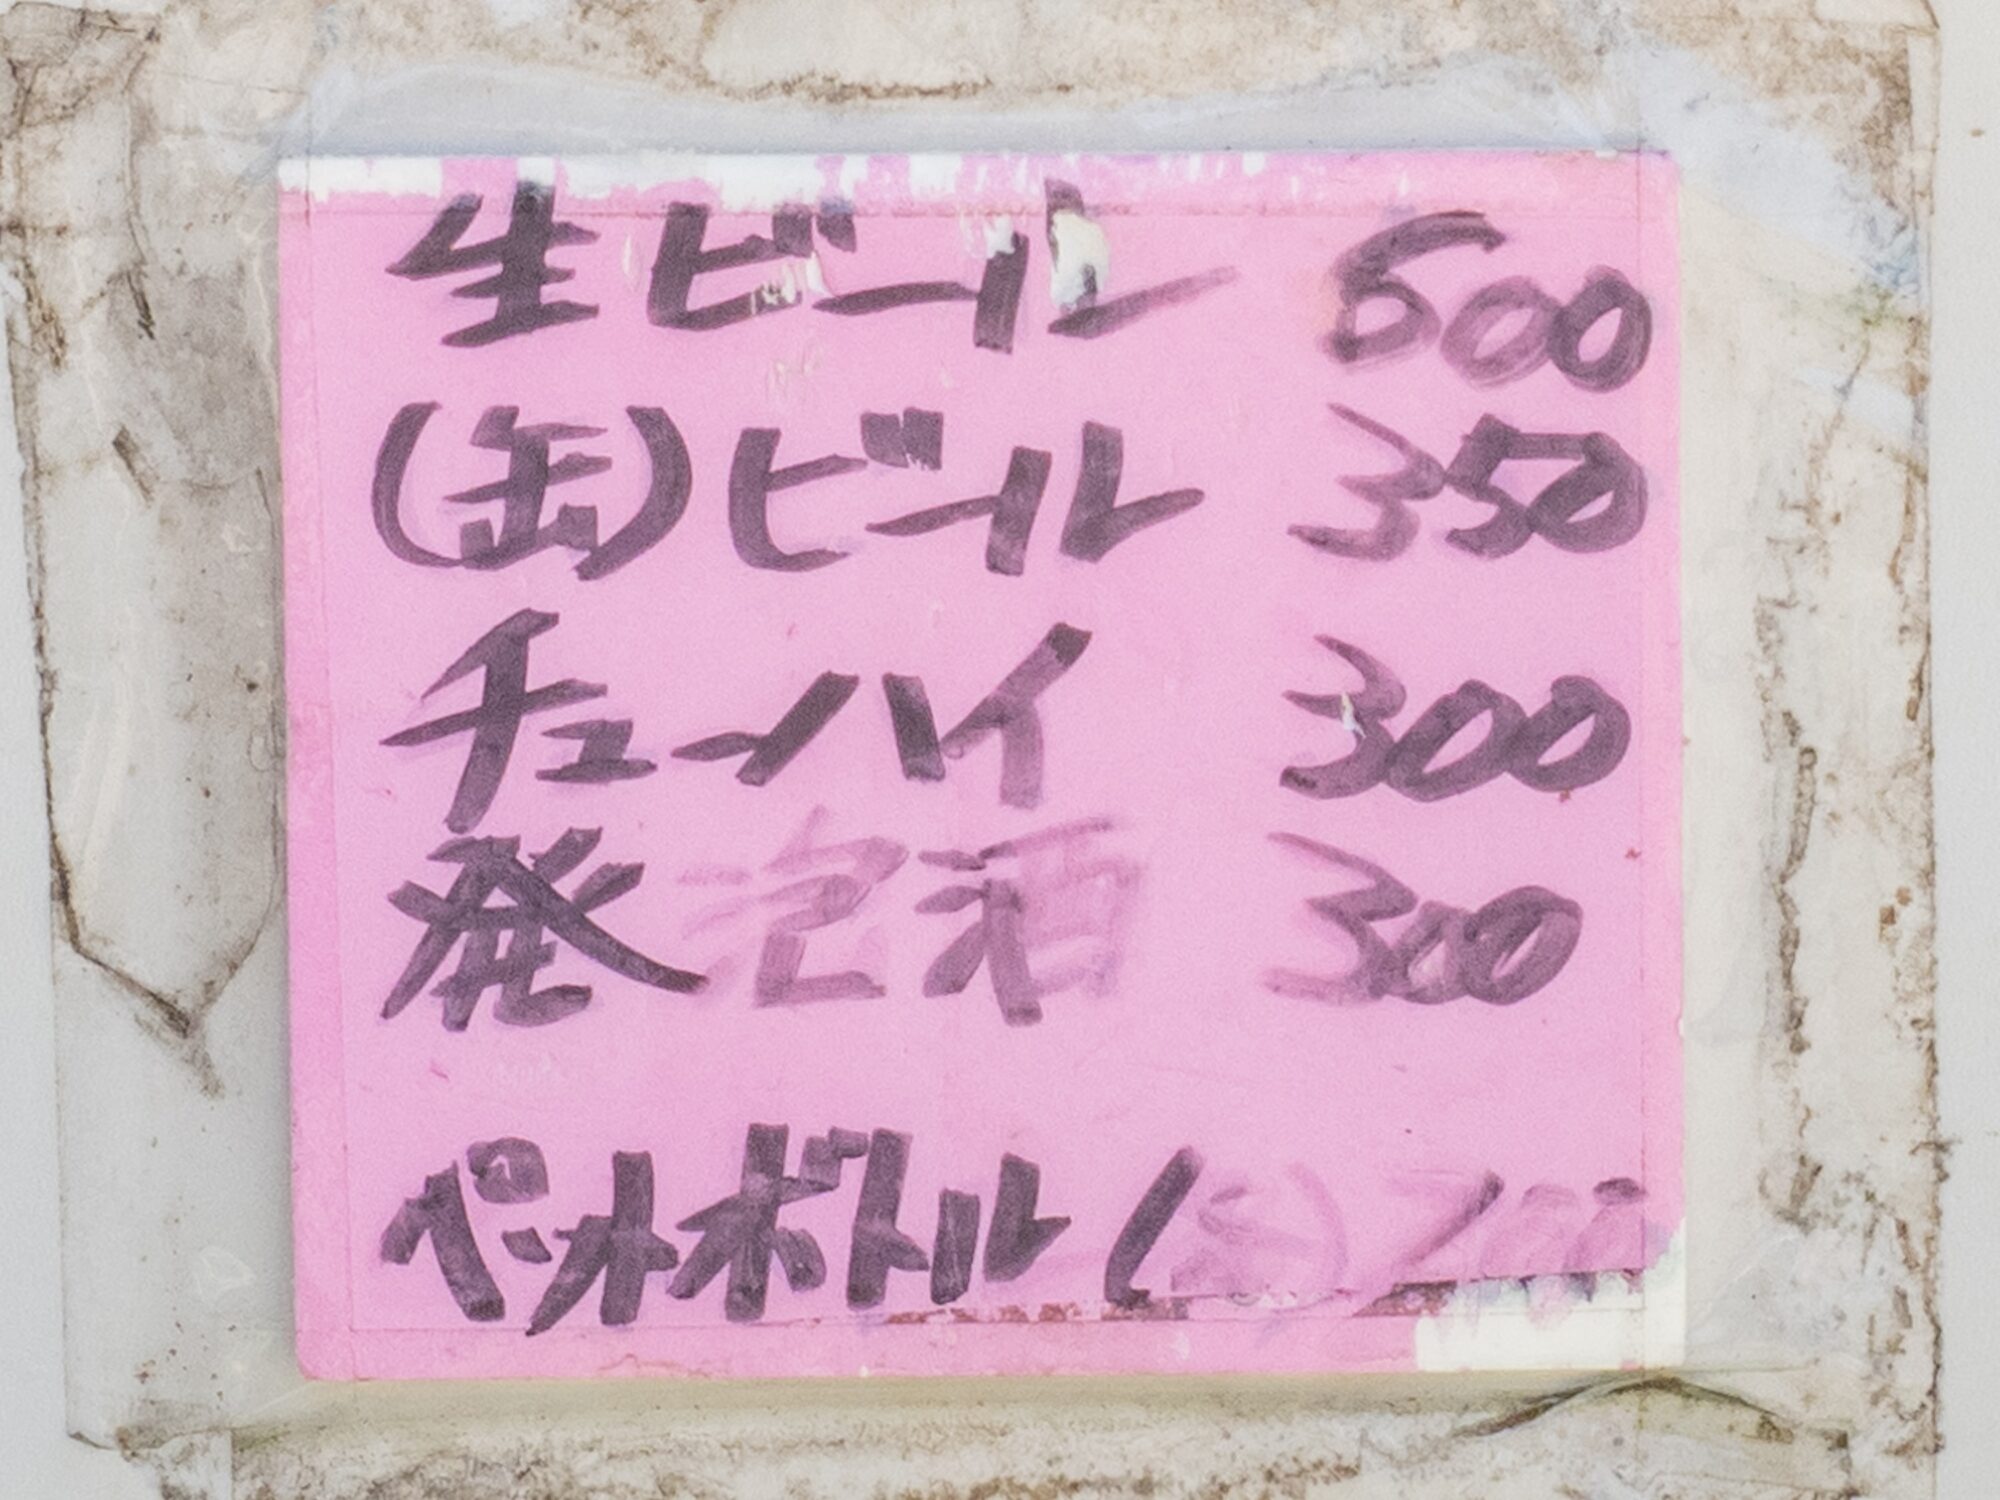 生ビール 600
(缶)ビール 350
チューハイ 300
発泡酒 300
ペットボトル( ) 200